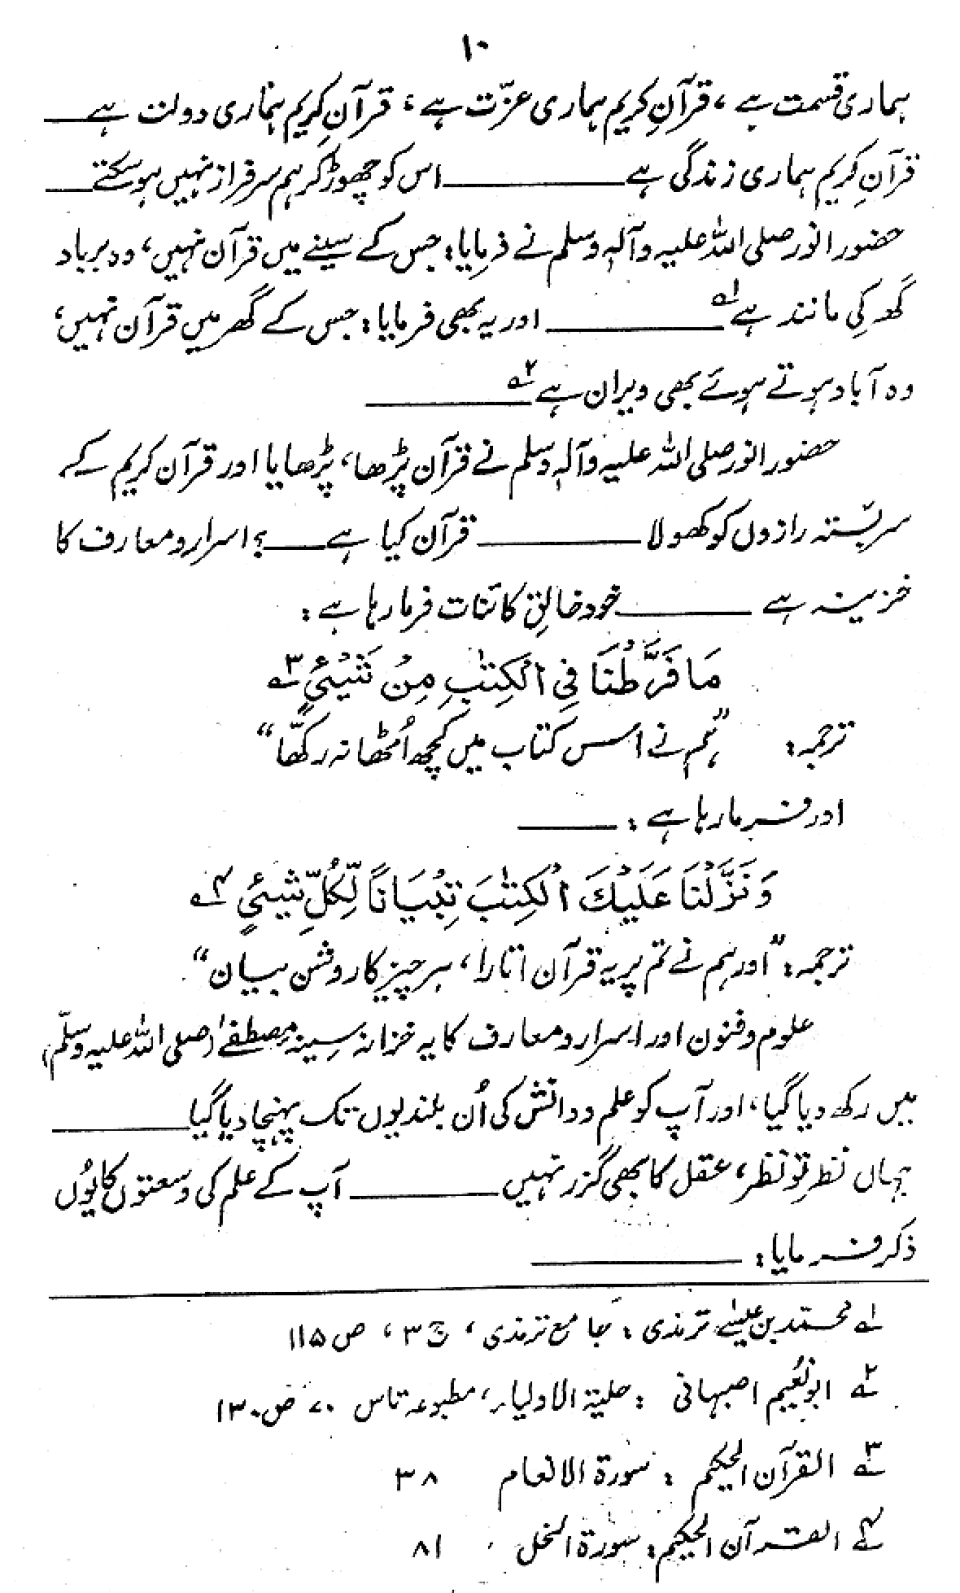 ۱۰
ہماری قسمت ہے، قرآنِ کریم ہماری عزّت ہے، قرآنِ کریم ہماری دولت ہے ــــــ
قرآنِ کریم ہماری زندگی ہے ــــــــــــ اس کو چھوڑ کر ہم سرفراز نہیں ہو سکتے ــــــ
حضور انور صلی اللہ علیہ وآلہٖ وسلم نے فرمایا: جس کے سینے میں قرآن نہیں، وہ برباد
گھر کی مانند ہے ۱؎ ــــــــــــ اور یہ بھی فرمایا: جس کے گھر میں قرآن نہیں،
وہ آباد ہوتے ہوئے بھی ویران ہے ۲؎ ــــــــــــ
حضور انور صلی اللہ علیہ وآلہٖ وسلم نے قرآن پڑھا، پڑھایا اور قرآن کریم کے
سربستہ رازوں کو کھولا ــــــــــــ قرآن کیا ہے ــــــ؟ اسرار و معارف کا
خزینہ ہے ــــــــــــ خود خالقِ کائنات فرما رہا ہے:
مَا فَرَّطْنَا فِی الْکِتٰبِ مِنْ شَیْئٍ ۳؎
ترجمہ: "ہم نے اس کتاب میں کچھ اُٹھا نہ رکھّا"
اور فرما رہا ہے: ــــــ
وَنَزَّلْنَا عَلَیْکَ الْکِتٰبَ تِبْیَانًا لِّکُلِّ شَیْئٍ ۴؎
ترجمہ: "اور ہم نے تم پر یہ قرآن اتارا، ہر چیز کا روشن بیان"
علوم و فنون اور اسرار و معارف کا یہ خزانہ سینۂ مصطفےٰ (صلی اللہ علیہ وسلّم)
میں رکھ دیا گیا، اور آپ کو علم و دانش کی اُن بلندیوں تک پہنچا دیا گیا ــــــــــــ
جہاں نظر تو نظر، عقل کا بھی گزر نہیں ــــــــــــ آپ کے علم کی وسعتوں کا یُوں
ذکر فرمایا: ــــــــــــ
۱؎ محمد بن عیسےٰ ترمذی: جامع ترمذی، ج ۳، ص ۱۱۵
۲؎ ابو نُعیم اصبہانی: حلیۃ الاولیاء، مطبوعہ ص ۱۳۰
۳؎ القرآن الحکیم: سورۃ الانعام ۳۸
۴؎ القرآن الحکیم: سورۃ النحل ۸۱